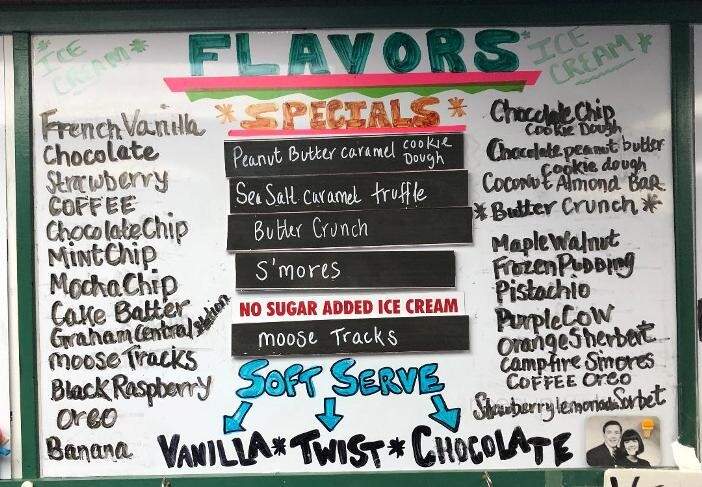 FLAVORS
*ICE CREAM*
*ICE CREAM*
*SPECIALS*
Peanut Butter caramel cookie Dough
Sea Salt caramel truffle
Butter Crunch
S'mores
NO SUGAR ADDED ICE CREAM
moose Tracks
SOFT SERVE
VANILLA*TWIST*CHOCOLATE
French Vanilla
Chocolate
Strawberry
COFFEE
Chocolate Chip
Mint Chip
Mocha Chip
Cake Batter
Graham Central Station
moose Tracks
Black Raspberry
oreo
Banana
Chocolate Chip
Cookie Dough
Chocolate peanut butter
Cookie dough
Coconut Almond BAR
*Butter Crunch*
Maple Walnut
Frozen Pudding
Pistachio
Purple COW
Orange Sherbert
Campfire S'mores
COFFEE Oreo
Strawberry lemonade Sorbet